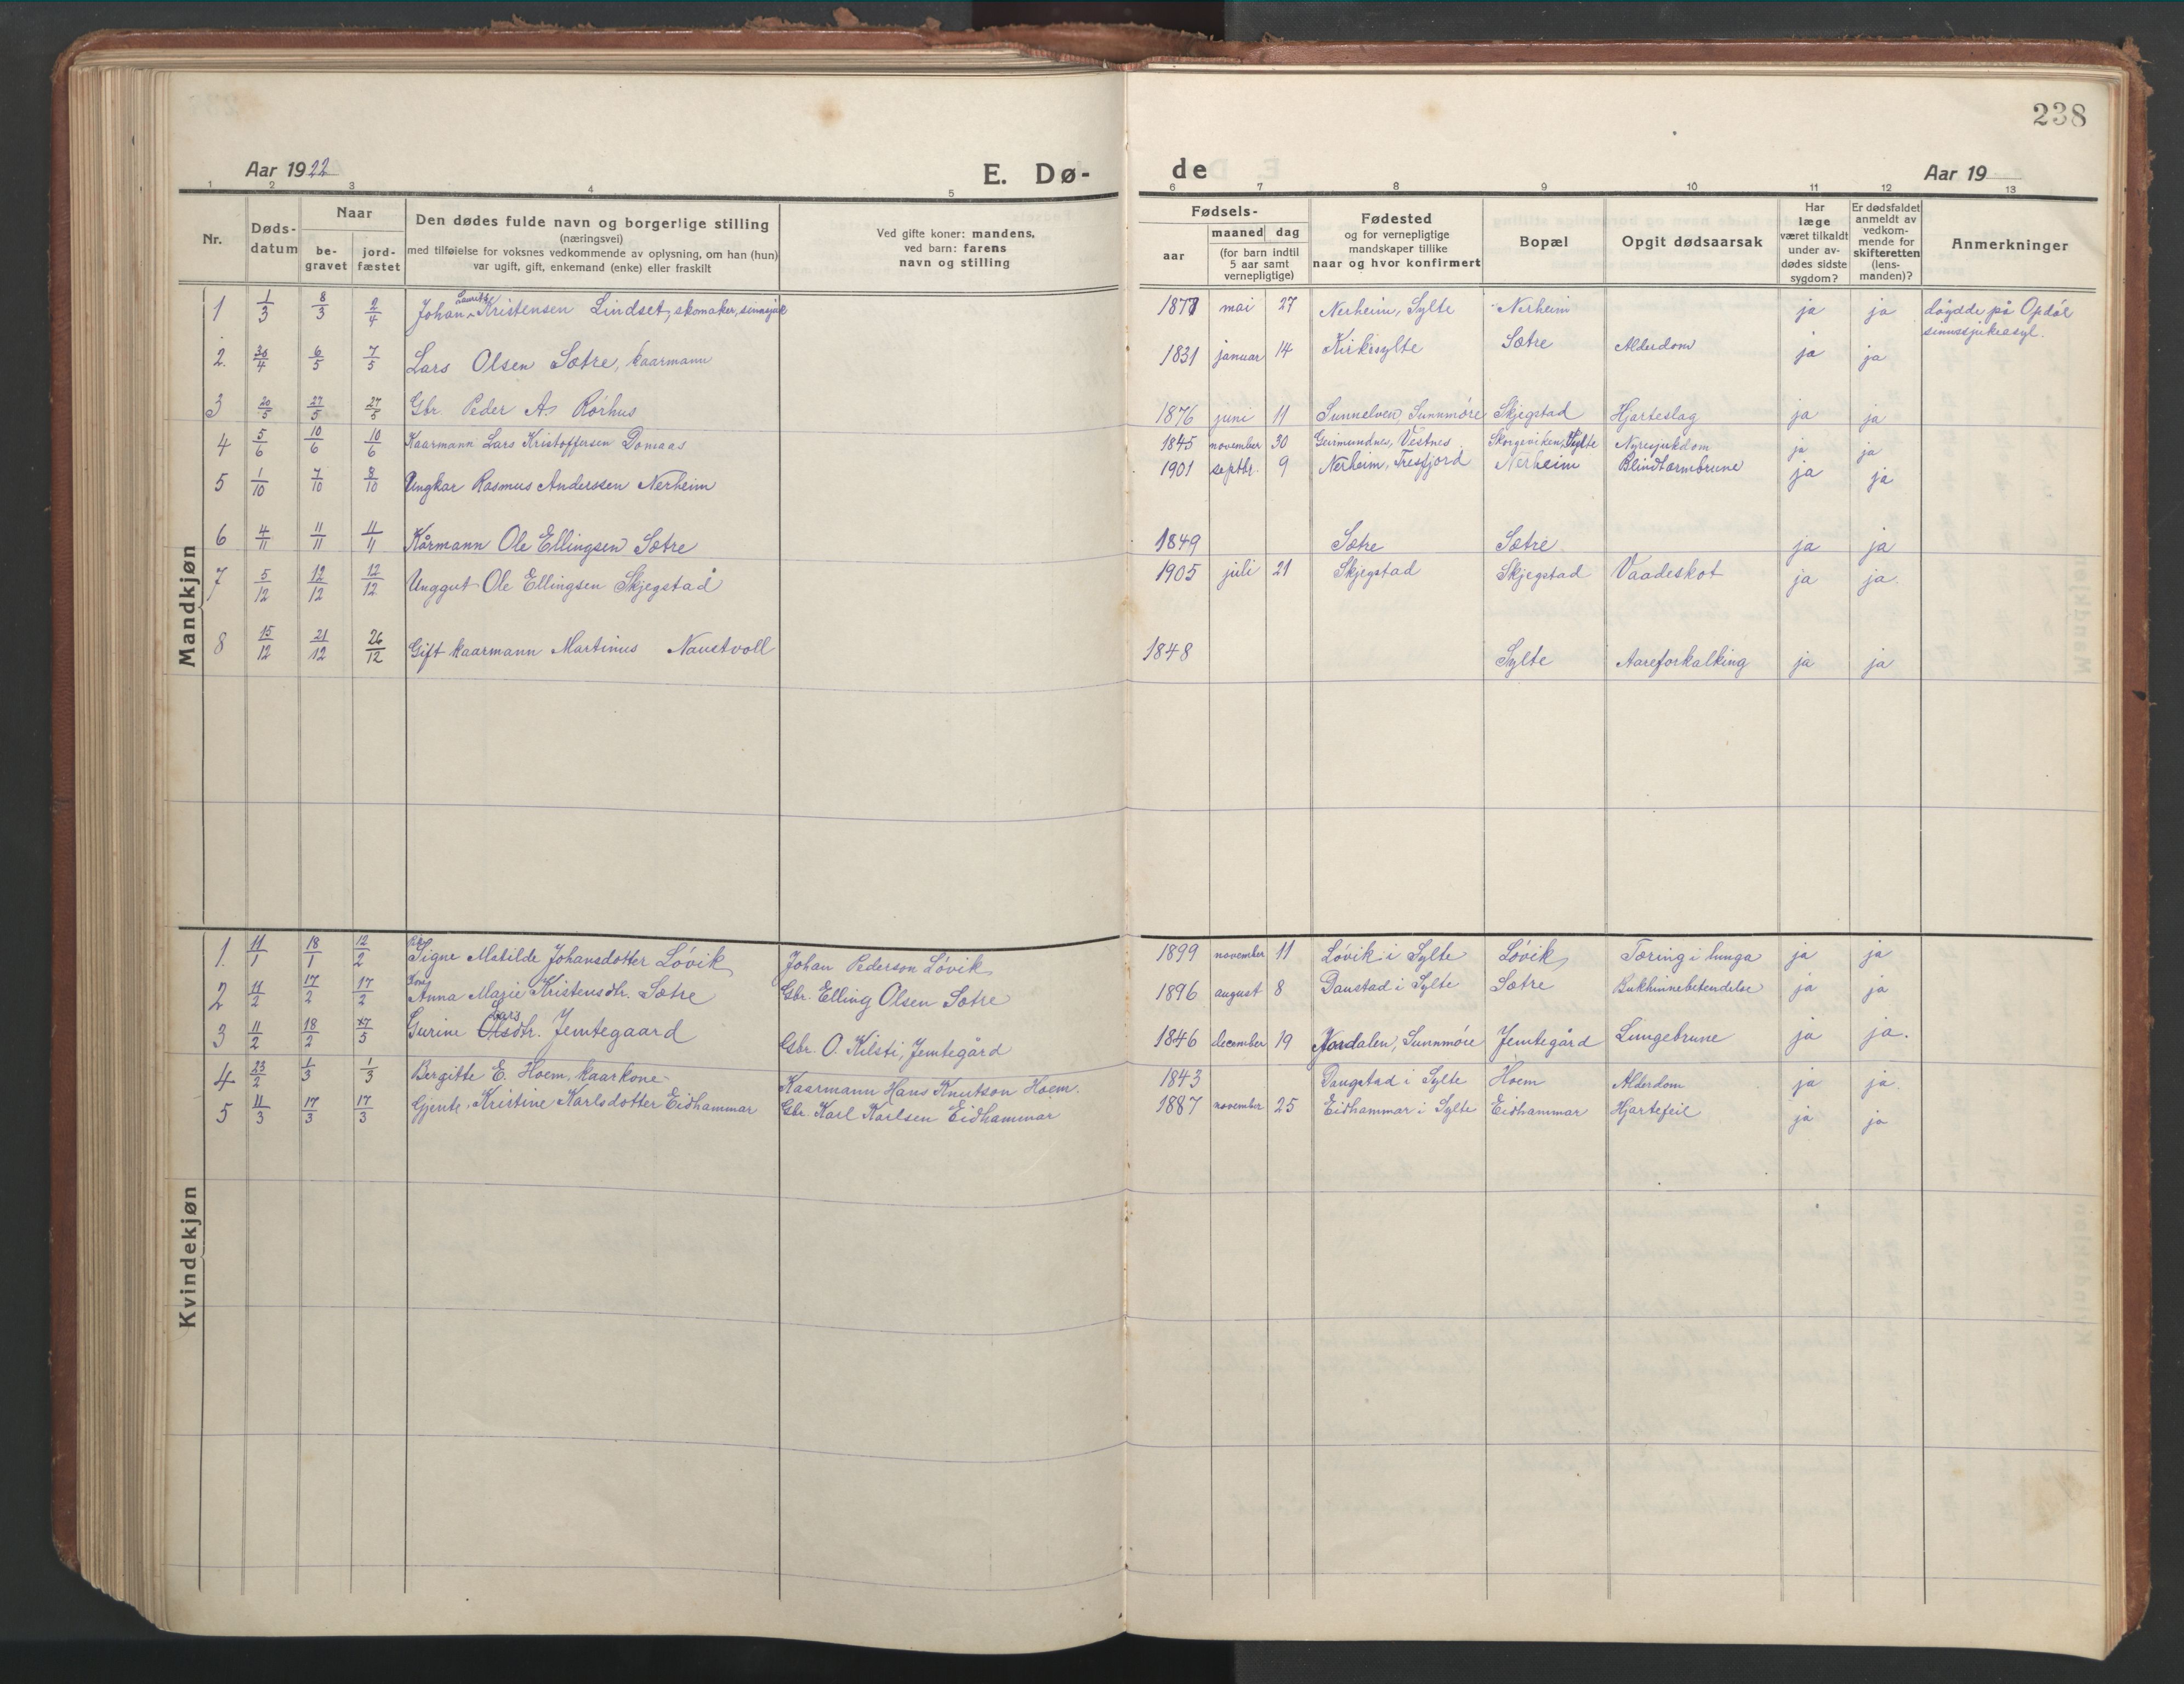 238
Aar 1922
E. Dø-
de
Aar 19
1 2 3 4 5 6 7 8 9 10 11 12 13
Nr.
Døds-
datum
Naar
be-
gravet
jord-
fæstet
Den dødes fulde navn og borgerlige stilling
(næringsvei)
med tilføielse for voksnes vedkommende av oplysning, om han (hun)
var ugift, gift, enkemand (enke) eller fraskilt
Ved gifte koner: mandens,
ved barn: farens
navn og stilling
Fødsels-
aar
maaned dag
(for barn indtil
5 aar samt
vernepligtige)
Fødested
og for vernepligtige
mandskaper tillike
naar og hvor konfirmert
Bopæl
Opgit dødsaarsak
Har
læge
været tilkaldt
under av-
dødes sidste
sygdom?
Er dødsfaldet
anmeldt av
vedkom-
mende for
skifteretten
(lens-
manden)?
Anmerkninger
Mandkjøn
1 1/3 8/3 2/4 Johan Lauritz Kristensen Lindset, skomaker, sinnsjuk 1877 mai 27 Nerheim, Sylte Nerheim ja ja døydde på Opdøl
sinnssjukeasyl.
2. 30/4 6/5 7/5 Lars Olsen Sætre, kaarmann 1831 januar 14 Kirksylte Sætre Alderdom ja ja
3 20/5 27/5 27/5 Gbr. Peder A. Rørhus 1876 juni 11 Sunnelven, Sunnmøre Skjegstad Hjarteslag ja ja
4 5/6 10/6 10/6 Kaarmann Lars Kristoffersen Domaas 1845 november 30 Geirmundnes, Vestnes Skorgeviken, Sylte Nyresjukdom ja ja
5 1/10 7/10 8/10 Ungkar Rasmus Anderssen Nerheim 1901 septbr. 9 Nerheim, Tresfjord Nerheim Blindtarmbrune ja ja
6 4/11 11/11 11/11 Kårmann Ole Ellingsen Sætre 1849 Sætre Sætre ja ja
7 5/12 12/12 12/12 Unggut Ole Ellingsen Skjegstad 1905 juli 21 Skjegstad Skjegstad Vaadeskot ja ja.
8 15/12 21/12 26/12 Gift kaarmann Martinus Naustvoll 1848 Sylte Aareforkalking ja ja
Kvindekjøn
1. 11/1 18/1 12/2 Signe Matilde Johansdotter Løvik Johan Pederson Løvik 1899 november 11 Løvik i Sylte Løvik Tæring i lunga ja ja
2 11/2 17/2 17/2 Kone Anna Marie Kristensdtr. Sætre Gbr. Elling Olsen Sætre 1896 august 8 Daustad i Sylte Sætre Bukhinnebetendelse ja ja
3 11/2 18/2 27/5 Gurine Olsdtr. Lars Jemtegaard Gbr. O. Kilsti, Jemtegård 1846 december 19 Nordalen, Sunnmøre Jemtegård Lungebrune ja ja.
4 23/2 1/3 1/3 Bergitte E. Hoem, kaarkone Kaarmann Hans Knutson Hoem. 1843 Daugstad i Sylte Hoem Alderdom ja ja.
5 11/3 17/3 17/3 Gjente Kristine Karlsdotter Eidhammar Gbr. Karl Karlsen Eidhammar 1887 november 25 Eidhammar i Sylte Eidhammar Hjartefeil ja ja